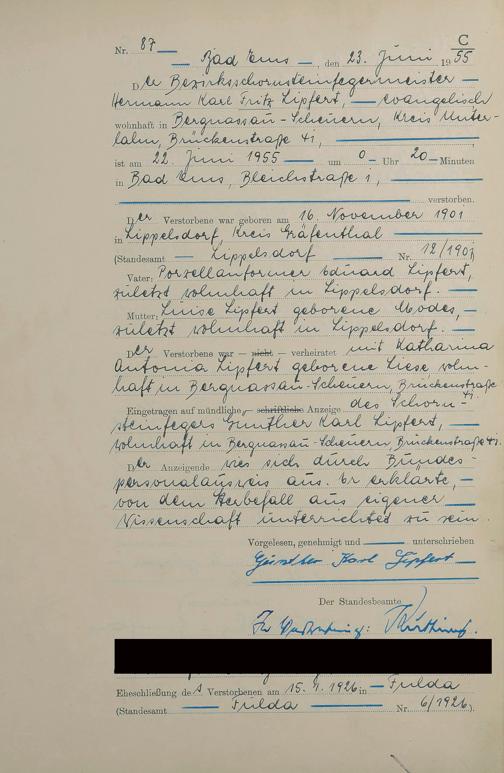 C
Nr. 87
Bad Ems, den 23. Juni 1955
Der Bezirksschornsteinfegermeister
Hermann Karl Fritz Lipfert, evangelisch
wohnhaft in Bergnassau-Scheuern, Kreis Unter-
lahn, Brückenstraße 41,
ist am 22. Juni 1955 um 0 Uhr 20 Minuten
in Bad Ems, Bleichstraße 1,
verstorben.
Der Verstorbene war geboren am 16. November 1901
in Lippelsdorf, Kreis Gräfenthal
(Standesamt Lippelsdorf Nr. 12/1901)
Vater: Porzellanformer Eduard Lipfert,
zuletzt wohnhaft in Lippelsdorf.
Mutter: Luise Lipfert geborene Modes,
zuletzt wohnhaft in Lippelsdorf.
Der Verstorbene war – nicht – verheiratet mit Katharina
Antonia Lipfert geborene Liese wohn-
haft in Bergnassau-Scheuern, Brückenstraße
41.
Eingetragen auf mündliche – schriftliche Anzeige des Schorn-
steinfegers Günther Karl Lipfert,
wohnhaft in Bergnassau-Scheuern, Brückenstraße 41.
Der Anzeigende wies sich durch Bundes-
personalausweis aus. Er erklärte,
von dem Sterbefall aus eigener
Wissenschaft unterrichtet zu sein.
Vorgelesen, genehmigt und unterschrieben
Günther Karl Lipfert
Der Standesbeamte
In Vertretung:
Eheschließung des Verstorbenen am 15.1.1926 in Fulda
(Standesamt Fulda Nr. 6/1926).